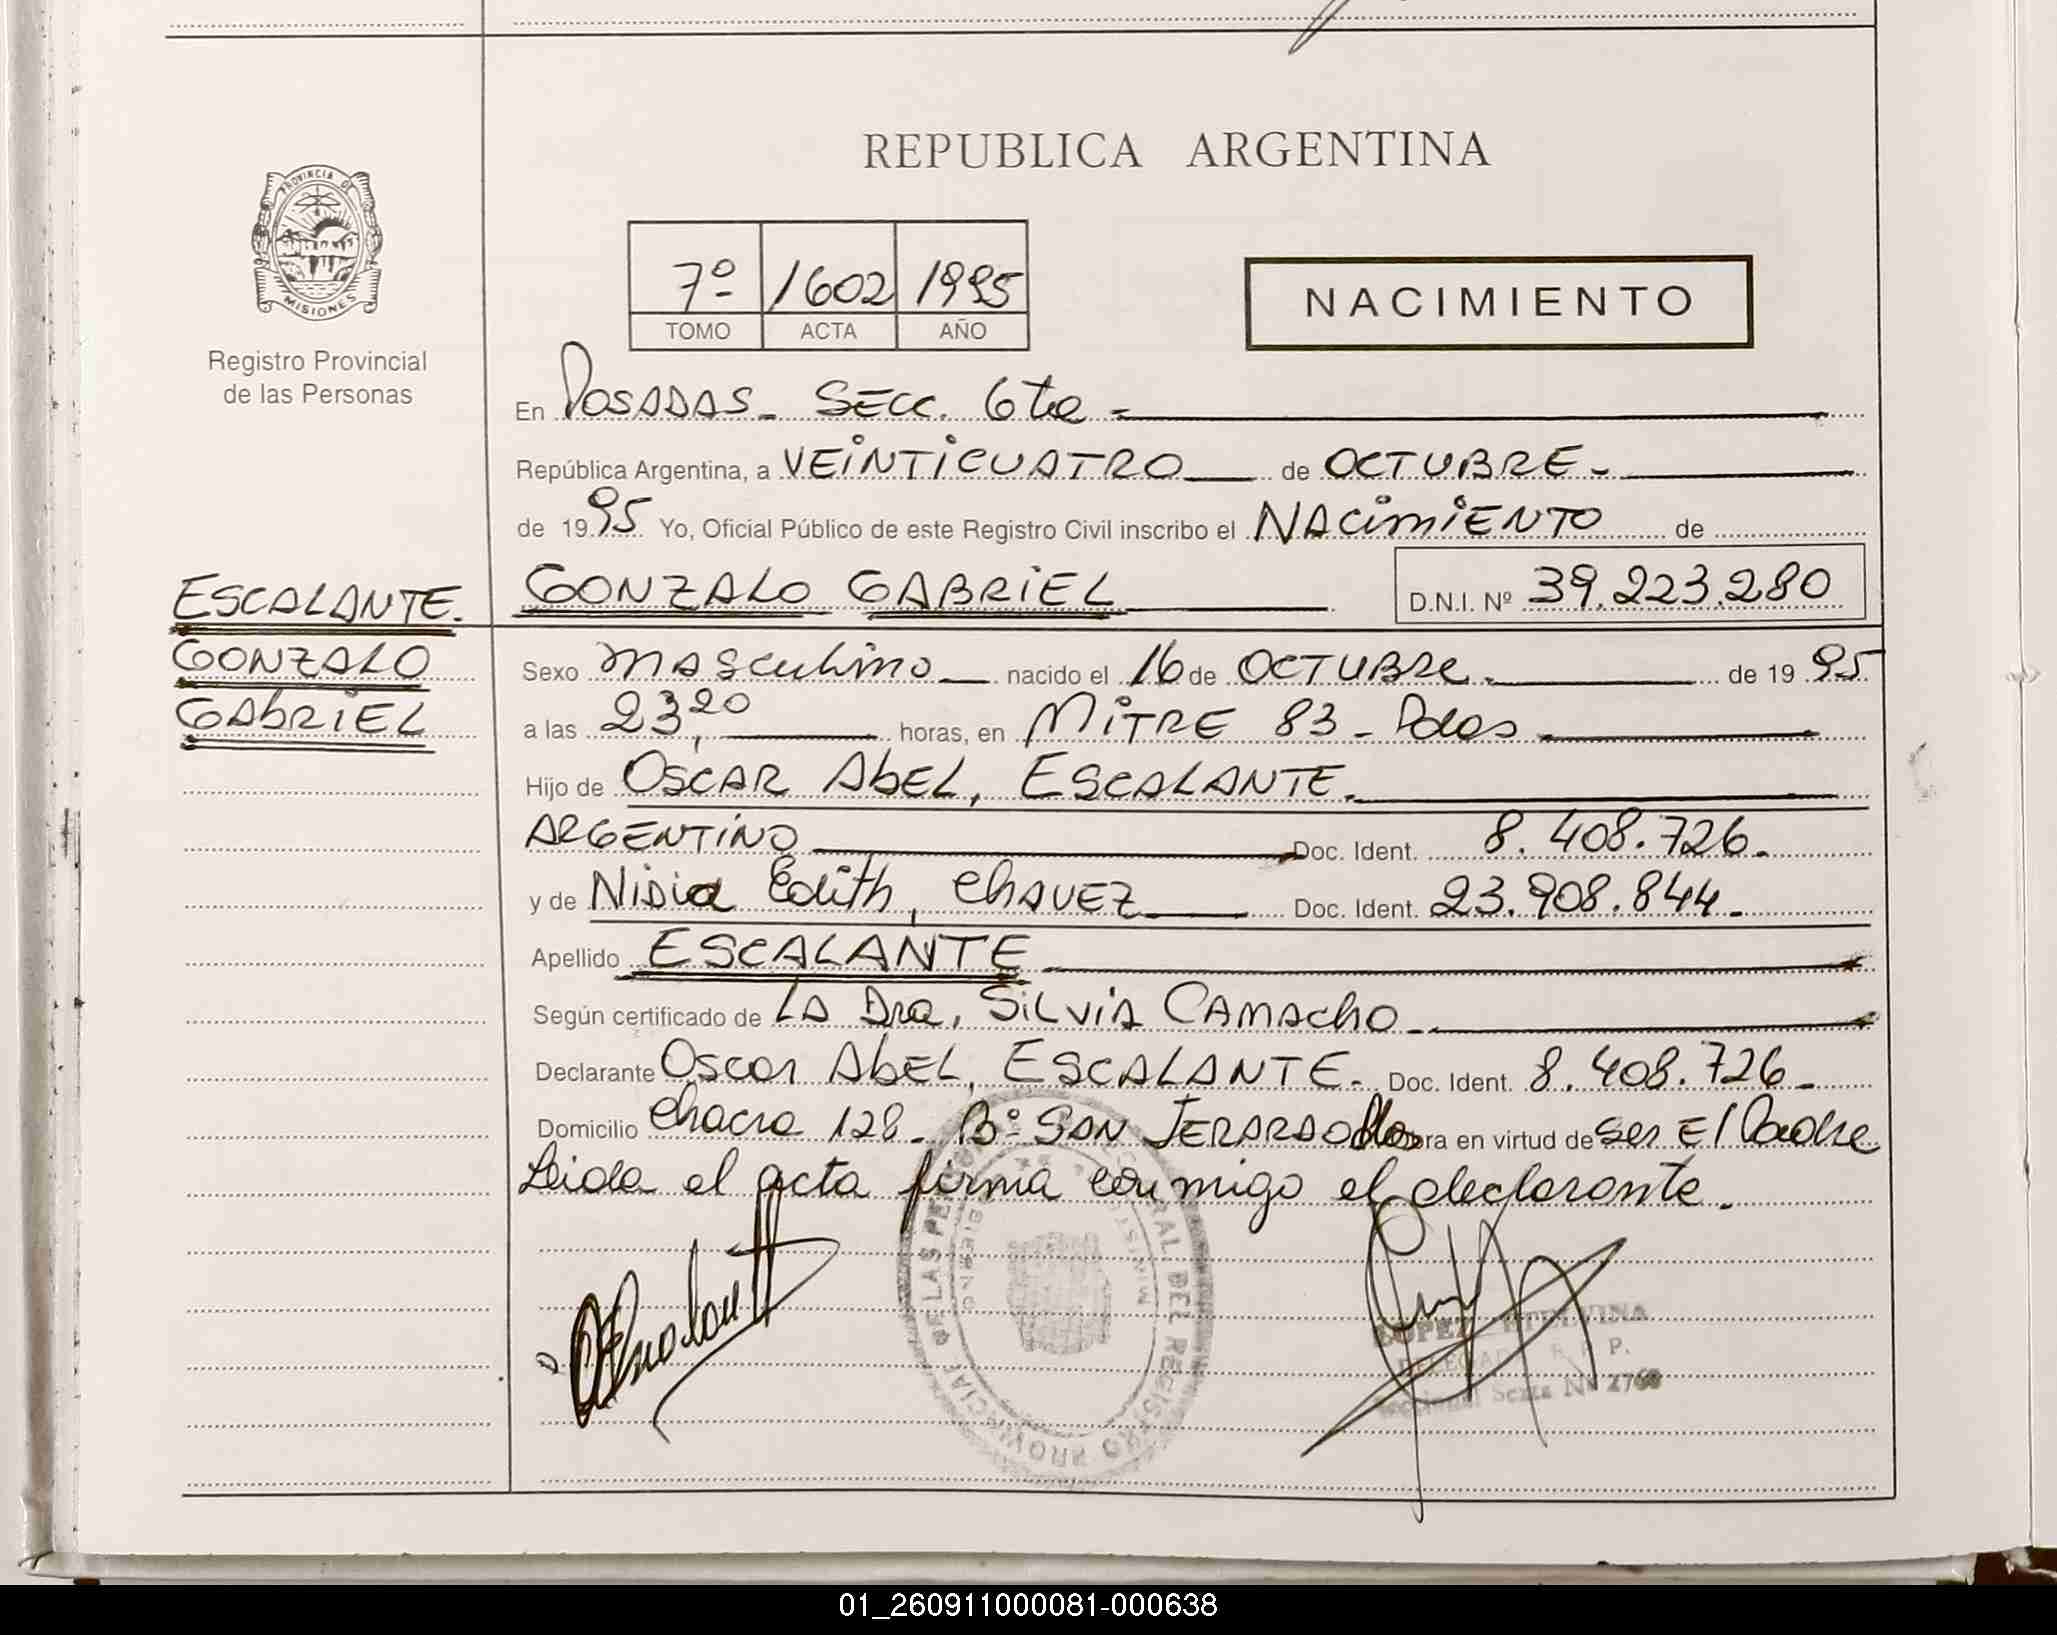 REPUBLICA ARGENTINA
PROVINCIA DE
MISIONES
Registro Provincial
de las Personas
7º 1602 1995
TOMO ACTA AÑO
NACIMIENTO
En POSADAS - SECC. 6ta -
República Argentina, a VEINTICUATRO de OCTUBRE -
de 19 95 Yo, Oficial Público de este Registro Civil inscribo el NACIMIENTO de
ESCALANTE. GONZALO GABRIEL D.N.I. Nº 39.223.280
GONZALO
GABRIEL
Sexo MASCULINO nacido el 16 de OCTUBRE. de 19 95
a las 23,20 horas, en MITRE 83 - Pdas
Hijo de OSCAR ABEL, ESCALANTE.
ARGENTINO Doc. Ident. 8.408.726.
y de NIDIA Edith, CHAVEZ Doc. Ident. 23.908.844.
Apellido ESCALANTE
Según certificado de LA Dra, SILVIA CAMACHO
Declarante OSCAR ABEL, ESCALANTE. Doc. Ident. 8.408.726
Domicilio Chacra 128 - Bº SAN JERARDO ra en virtud de ser El Padre
Leida el acta firma conmigo el declarante.
LOPEZ ETELVINA
DELEGADA R. P. P.
Seccional Sexta Nº 2768
01_260911000081-000638